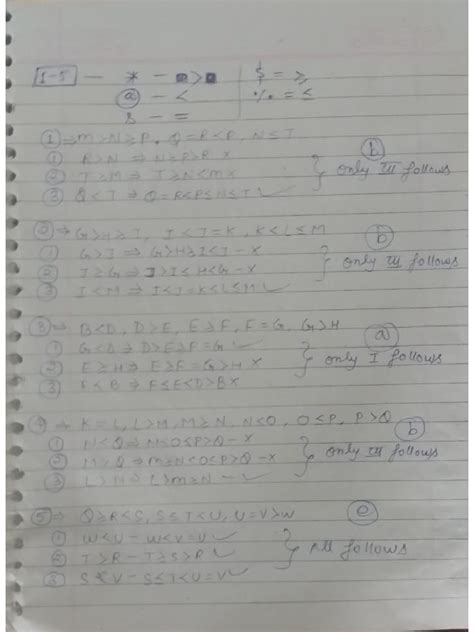 1-5 — * — > $ = ≥
@ — < % = ≤
& — =
① ⇒ M>N≥P, Q=R<P, N≤T
① R>N ⇒ N≥P>R ×
② T>M ⇒ T≥N<M ×
③ Q<T ⇒ Q=R<P≤N≤T ✓
} only III follows (b)
② ⇒ G>H≥I, I<J=K, K<L≤M
① G>J ⇒ G>H≥I<J - ×
② J≥G ⇒ J>I≤H<G - ×
③ I<M ⇒ I<J=K<L≤M ✓
} only III follows (b)
③ ⇒ B<D, D>E, E≥F, F=G, G>H
① G<D ⇒ D>E≥F=G ✓
② E≥H ⇒ E≥F=G>H ×
③ F<B ⇒ F≤E<D>B ×
} only I follows (a)
④ ⇒ K=L, L>M, M≥N, N<O, O≤P, P>Q
① N<Q ⇒ N<O≤P>Q - ×
② M>Q ⇒ M≥N<O≤P>Q - ×
③ L>N ⇒ L>M≥N - ✓
} only III follows (b)
⑤ ⇒ Q≥R<S, S≤T<U, U=V>W
① W<U - W<V=U ✓
② T>R - T≥S>R ✓
③ S<V - S≤T<U=V ✓
} All follows (e)